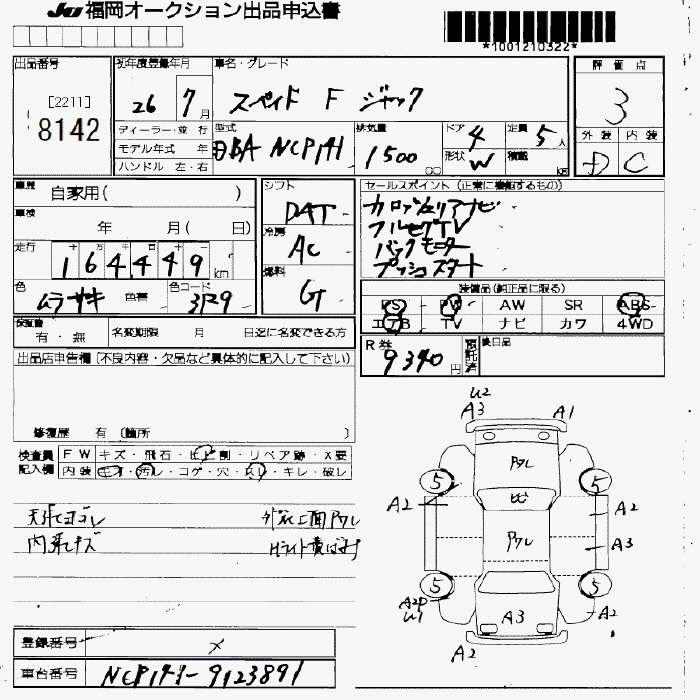 JU 福岡オークション出品申込書
*1001210322*
出品番号
[2211]
8142
初年度登録年月
26 7月
車名・グレード
スペイド F ジャック
評価点
3
外装 内装
D C
ディーラー・並行
モデル年式 年
ハンドル 左・右
型式
DBA NCP141
排気量
1500 cc
ドア 4
形状 W
定員 5人
積載 kg
車歴 自家用( )
車検 年 月( 日)
走行 164449 km
色 ムラサキ 色替
色コード 3P9
シフト DAT
冷房 AC
燃料 G
セールスポイント (正常に機能するもの)
カロッツェリアナビ
フルセグTV
バックモニター
プッシュスタート
装備品(純正品に限る)
PS PW AW SR ABS
エアB TV ナビ カワ 4WD
保証書 有・無
名変期限 月 日迄に名変できる方
R券 9340円
預託済
後日品
出品店申告欄〔不良内容・欠品など具体的に記入して下さい〕
修復歴 有 〔箇所 〕
検査員記入欄
FW キズ・飛石・ヒビ割・リペア跡・X要
内装 キズ・汚レ・コゲ・穴・スレ・キレ・破レ
天張ヨゴレ
内張キズ
ガラス二面アワレ
U2
A3 A1
アワレ
ヒビ
5 5
A2 A2
アワレ
A3
5 5
A2P
U1
A3
A2
A2
登録番号 ×
車台番号 NCP141-9123891